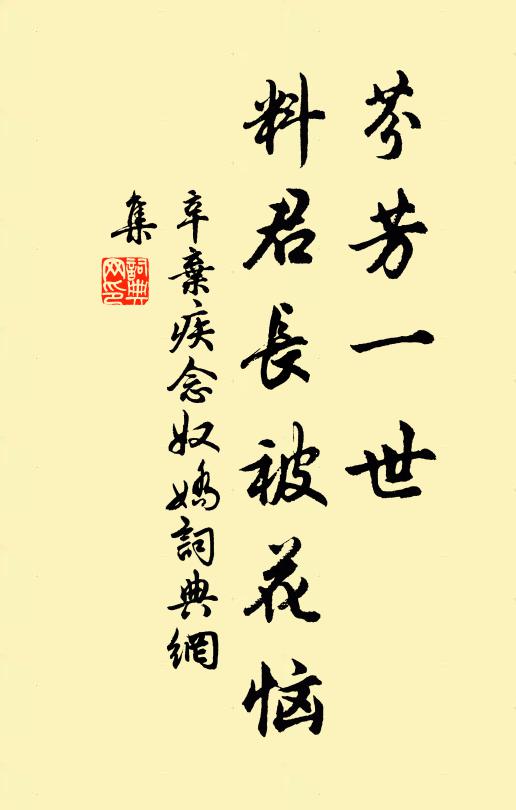 芬芳一世
料君長被花恼
辛棄疾念奴嬌詞典網
集
詞典网印